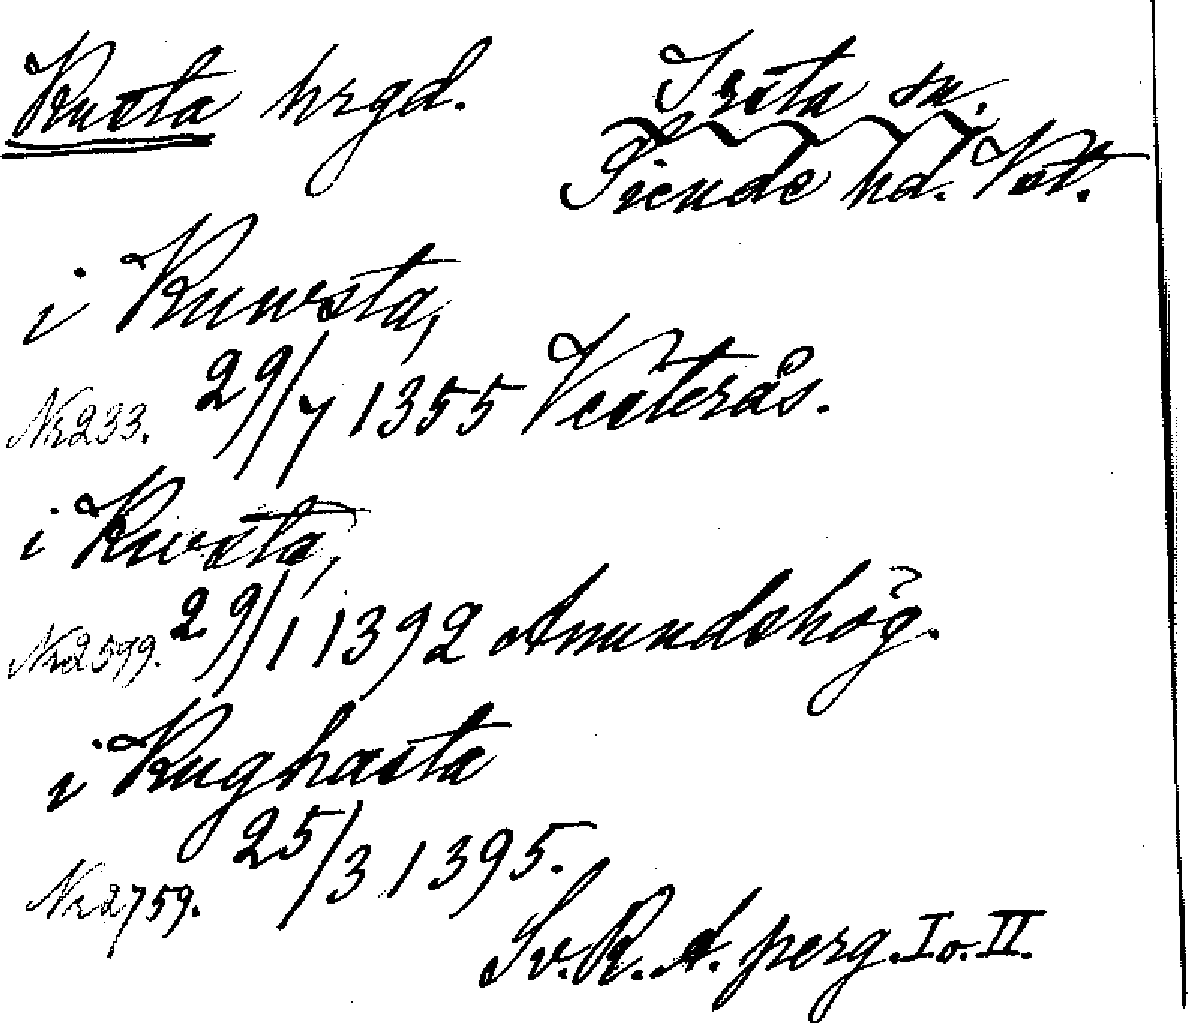 Kusta hrgd. Irsta sn.
Siende hd. Vstm.
i Kuwsta,
Nr 233. 29/7 1355 Vesterås.
i Kwsta,
Nr 2599. 29/1 1392 Anundshög.
i Kughasta
Nr 2759. 25/3 1395.
Sv. R. A. perg. I o. II.